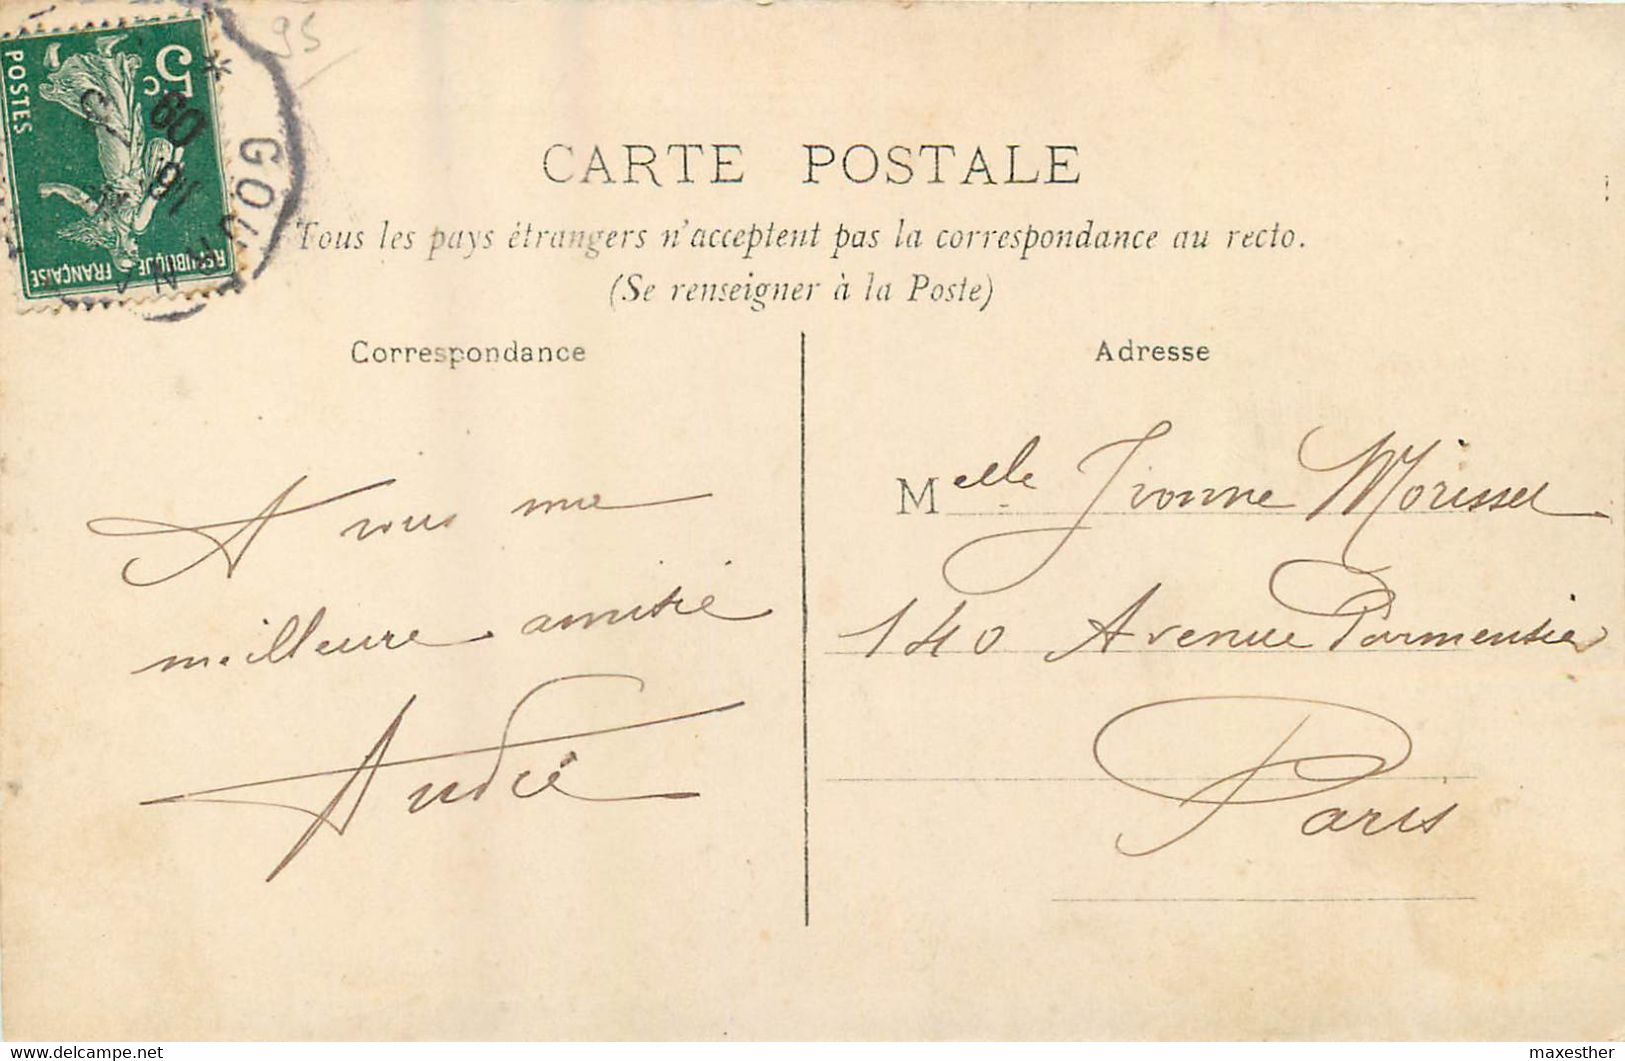 95
5c.
POSTES
RÉPUBLIQUE FRANÇAISE
09
16
CARTE POSTALE
Tous les pays étrangers n'acceptent pas la correspondance au recto.
(Se renseigner à la Poste)
Correspondance
A vous ma
meilleure amitié
André
Adresse
Melle Yvonne Morisset
140 Avenue Parmentier
Paris
delcampe.net
maxesther